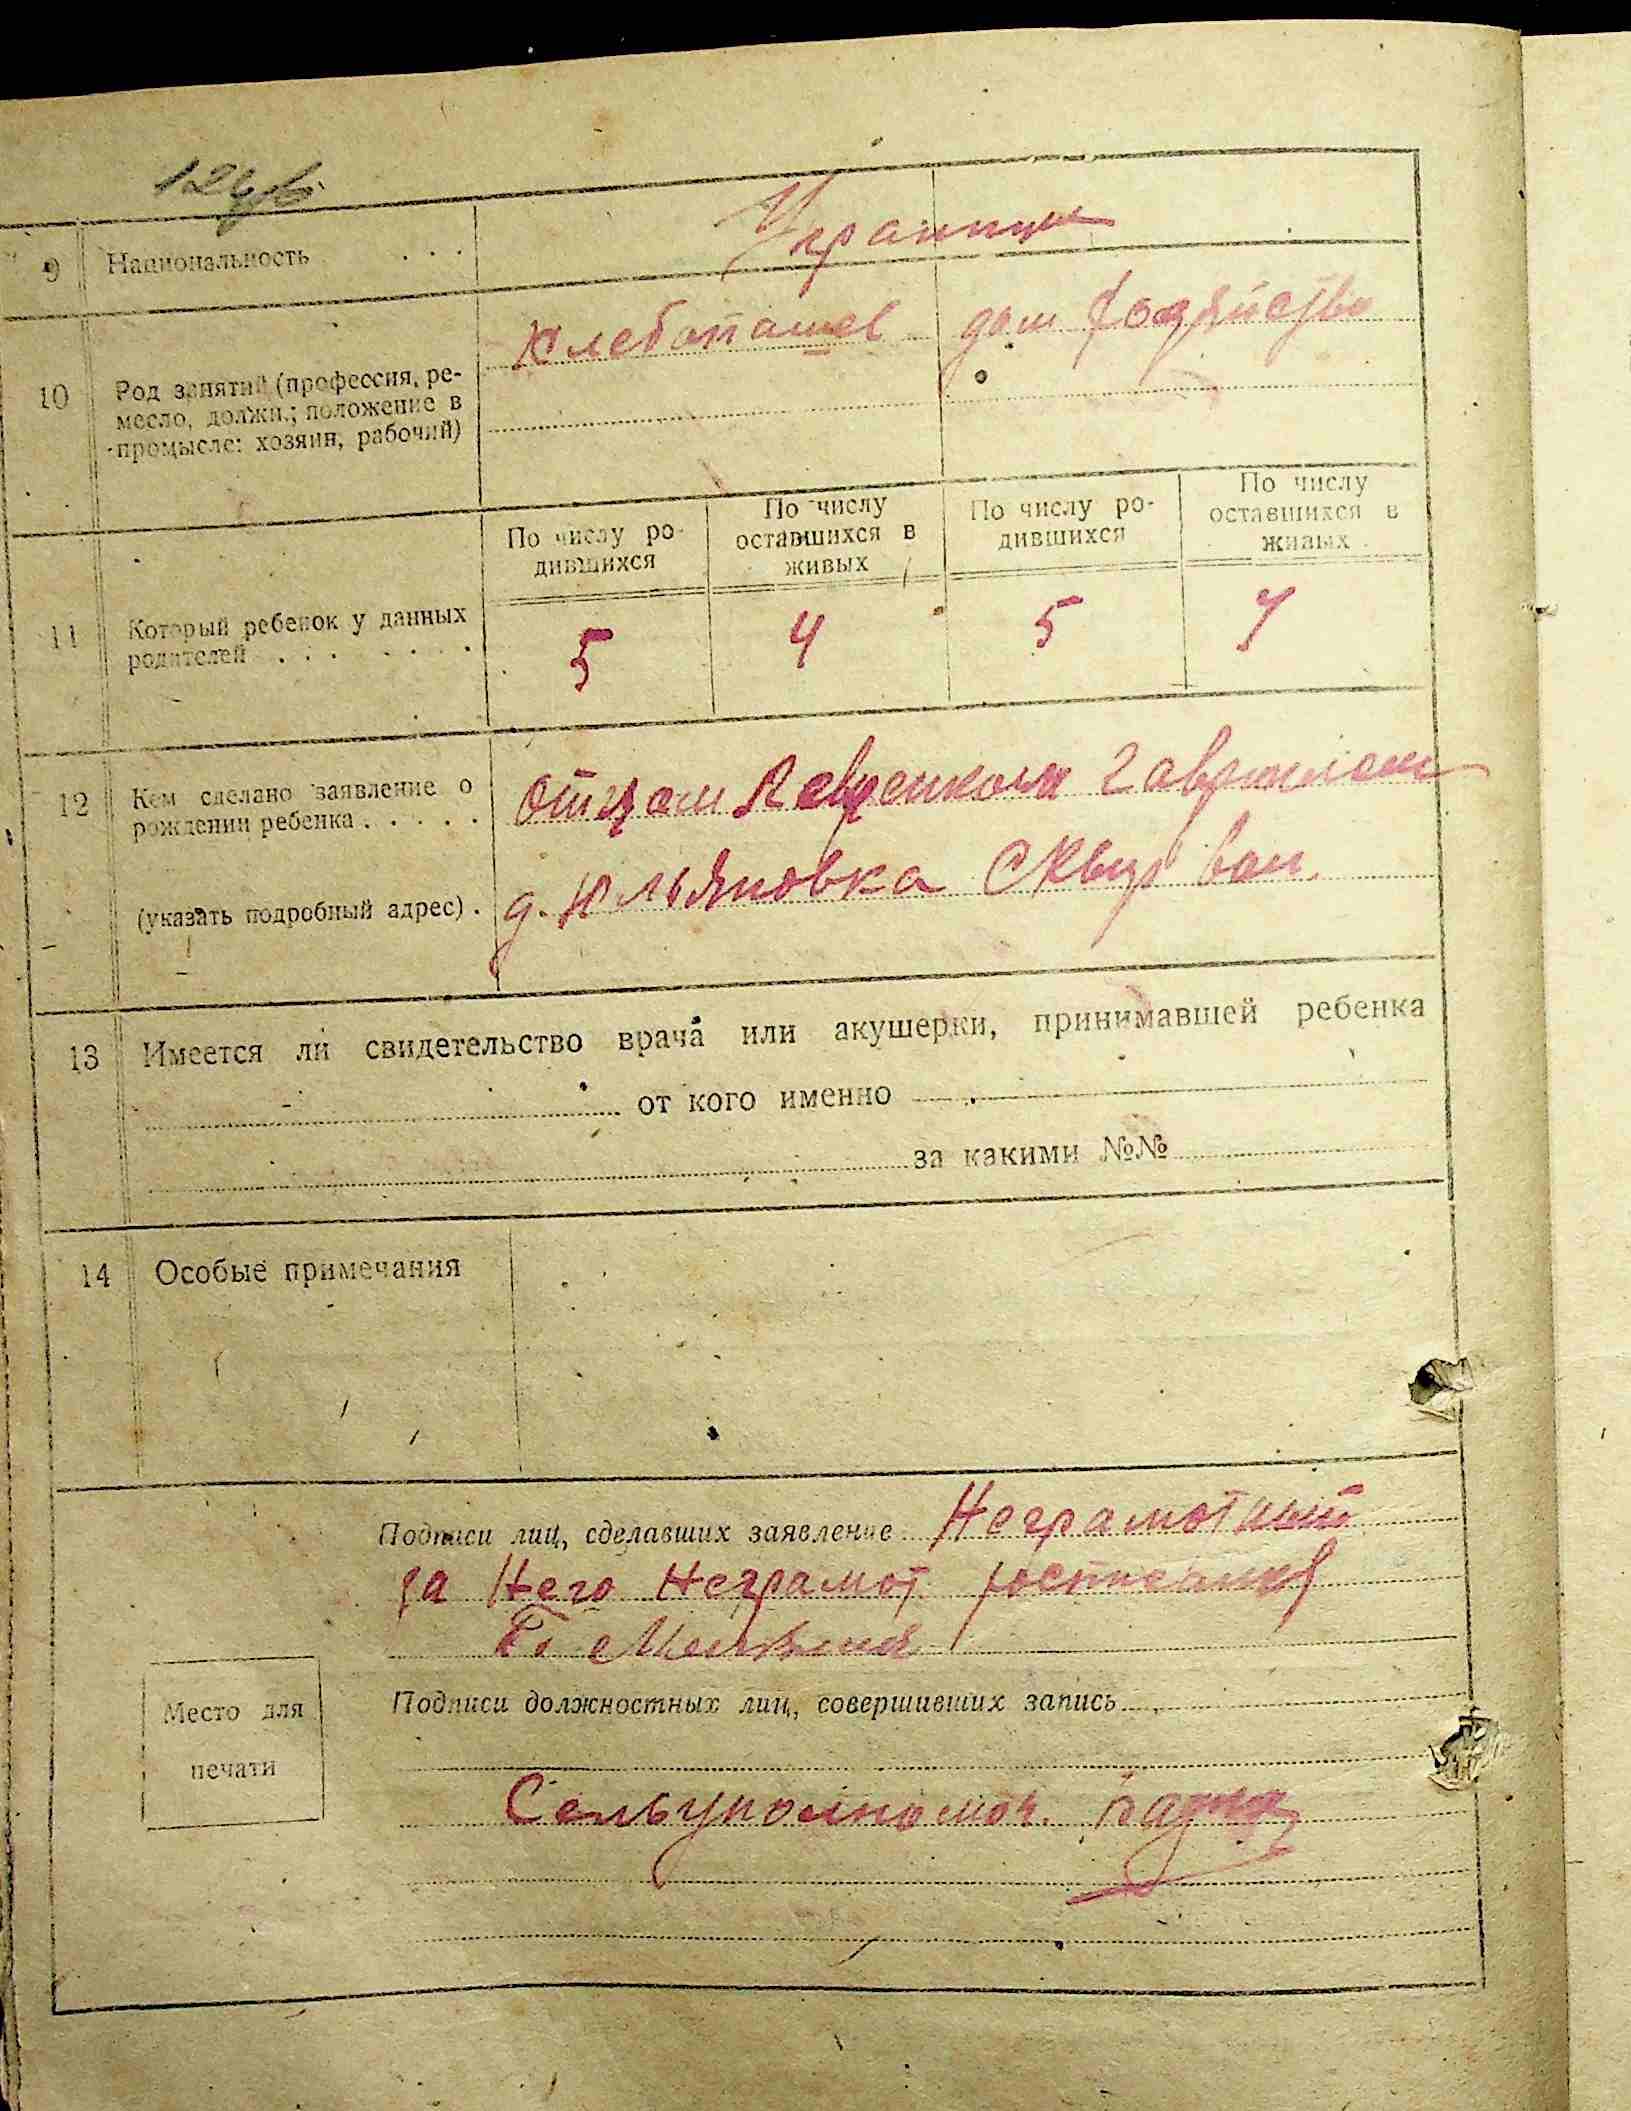 9 Национальность . . . Украинцы
10 Род занятий (профессия, ре-
месло, должн.; положение в
промысле: хозяин, рабочий)
Хлебопашес дом хозяйство
По числу ро-
дившихся
По числу
оставшихся в
живых
По числу ро-
дившихся
По числу
оставшихся в
живых
11 Который ребенок у данных
родителей . . . . . . .
5 4 5 4
12 Кем сделано заявление о
рождении ребенка . . . . .
Отцом Гаврилом
(указать подробный адрес) .
д. Юльяновка Сквир вол.
13 Имеется ли свидетельство врача или акушерки, принимавшей ребенка
от кого именно
за какими №№
14 Особые примечания
Подписи лиц, сделавших заявление Неграмотный
за Него Неграмот.
Подписи должностных лиц, совершивших запись
Место для
печати
Сельуполномоч.